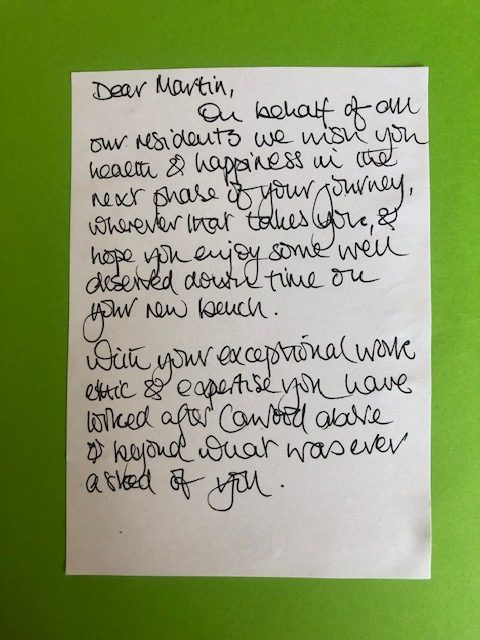 Dear Martin,
On behalf of all
our residents we wish you
health & happiness in the
next phase of your journey,
wherever that takes you, &
hope you enjoy some well
deserved down time on
your new bench.
With your exceptional work
ethic & expertise you have
looked after Canwood above
& beyond what was ever
asked of you.